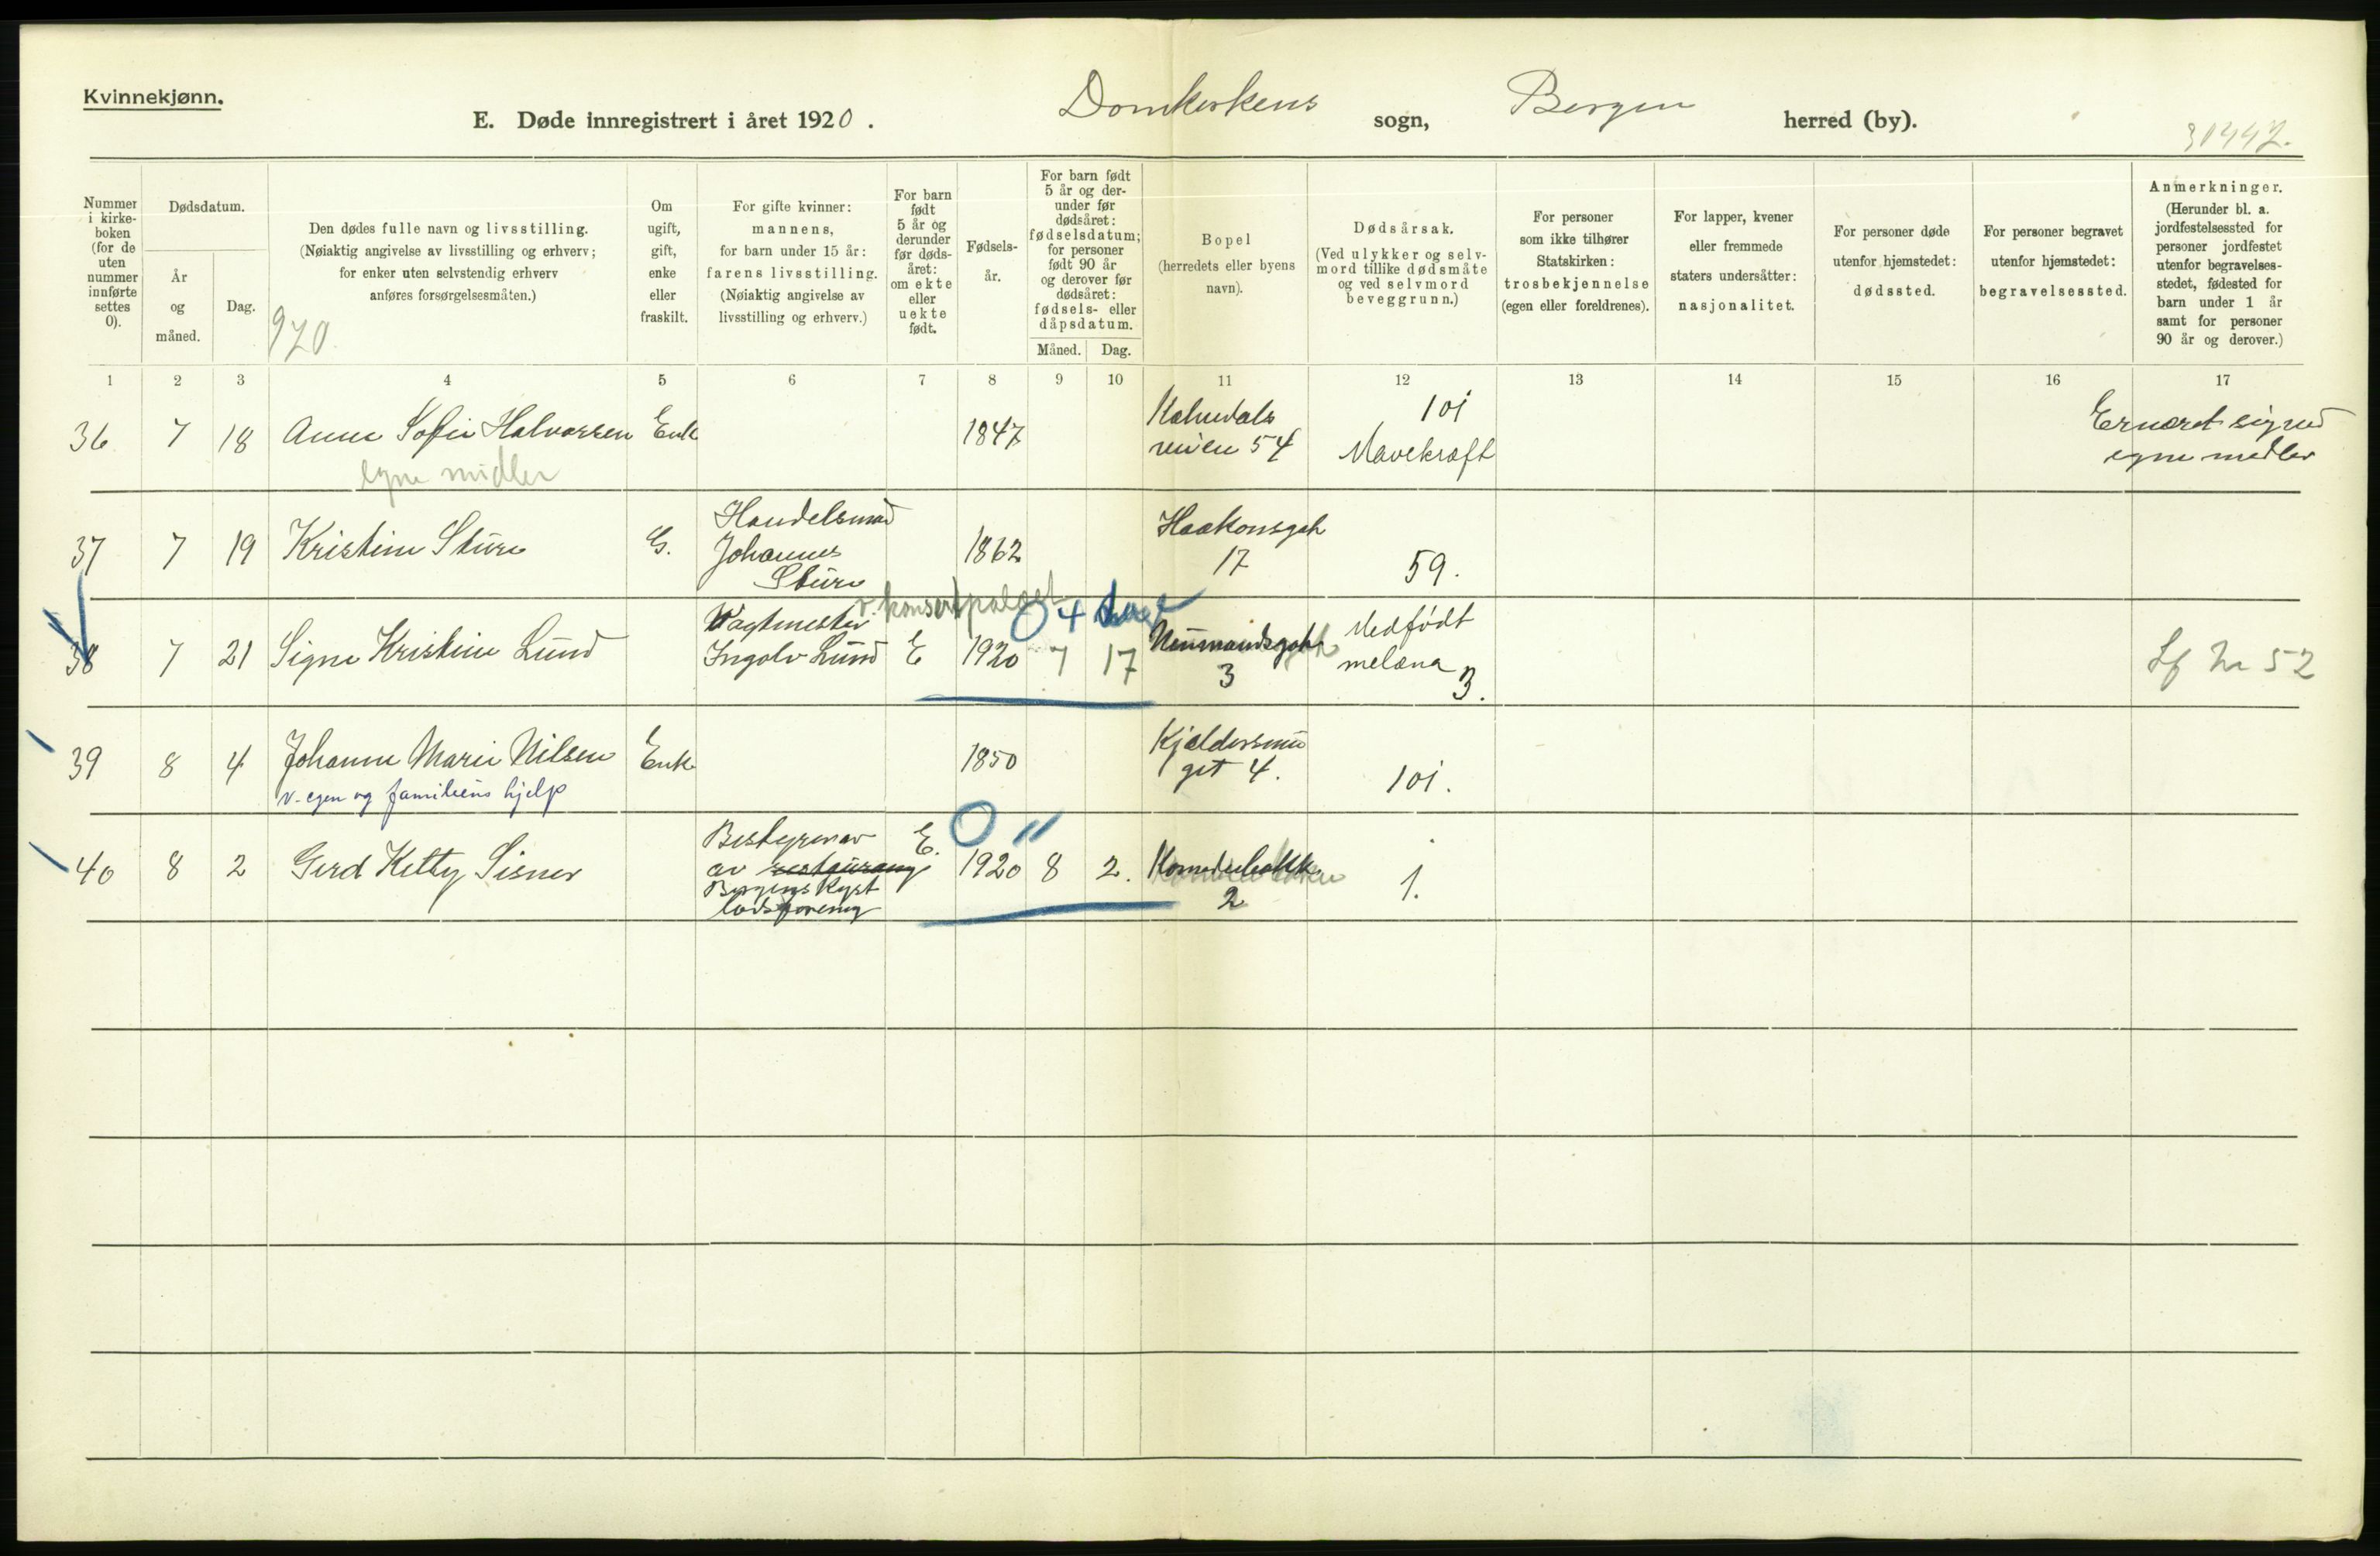 Kvinnekjønn.
E. Døde innregistrert i året 1920. Domkirkens sogn, Bergen herred (by).
31442.
Nummer i kirke- boken (for de uten nummer innførte settes 0).
Dødsdatum.
År og måned.
Dag.
Den dødes fulle navn og livsstilling.
(Nøiaktig angivelse av livsstilling og erhverv;
for enker uten selvstendig erhverv
anføres forsørgelsesmåten.)
920
Om ugift, gift, enke eller fraskilt.
For gifte kvinner:
mannens,
for barn under 15 år:
farens livsstilling.
(Nøiaktig angivelse av
livsstilling og erhverv.)
For barn født 5 år og derunder før døds- året: om ekte eller uekte født.
Fødsels- år.
For barn født 5 år og der- under før dødsåret: fødselsdatum; for personer født 90 år og derover før dødsåret: fødsels- eller dåpsdatum.
Måned. Dag.
Bopel
(herredets eller byens
navn).
Dødsårsak.
(Ved ulykker og selv-
mord tillike dødsmåte
og ved selvmord
beveggrunn.)
For personer
som ikke tilhører
Statskirken:
trosbekjennelse
(egen eller foreldrenes).
For lapper, kvener
eller fremmede
staters undersåtter:
nasjonalitet.
For personer døde
utenfor hjemstedet:
dødssted.
For personer begravet
utenfor hjemstedet:
begravelsessted.
Anmerkninger.
(Herunder bl. a.
jordfestelsessted for
personer jordfestet
utenfor begravelses-
stedet, fødested for
barn under 1 år
samt for personer
90 år og derover.)
1 2 3 4 5 6 7 8 9 10 11 12 13 14 15 16 17
36 7 18 Anne Sofie Halvorsen Enke 1847 Kalvedals
veien 54
101
Mavekræft
Ernæret sig ved
egne midler
egne midler
37 7 19 Kristine Sture G. Handelsmand
Johannes
Sture
1862 Haakonsgt
17
59.
38 7 21 Signe Kristine Lund Vagtmester v. konsertpalæet
Ingolv Lund E 1920 7 17 Neumandsgate
3
0 4 dage
Medfødt
melæna
3.
Lf Nr 52
39 8 4 Johanne Marie Nilsen Enke 1850 Kjeldersmu
get 4.
101.
v. egen og familiens hjelp
40 8 2 Gerd Kitty Sisner Bestyrer av
av restaurang
Bergens Kyst
lodsforening
E. 0 "
1920 8 2. Komediebakk.
2
1.